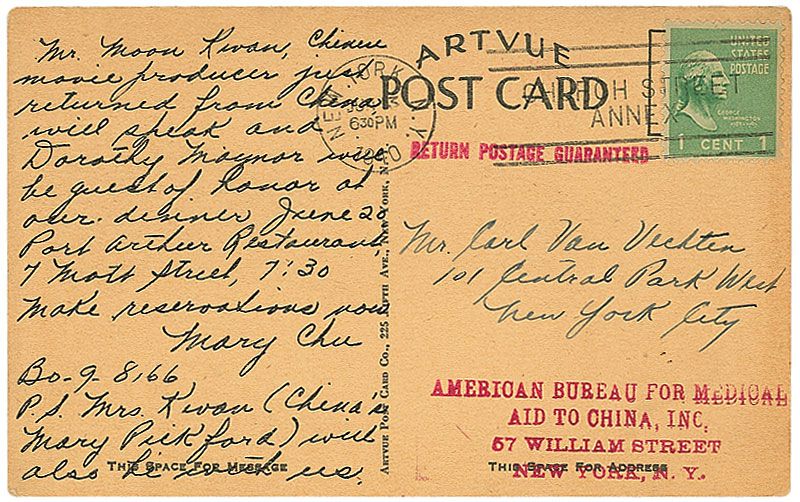 Mr. Moon Kwan, Chinese
movie producer just
returned from China
will speak and
Dorothy Maynor will
be guest of honor at
our dinner June 20
Port Arthur Restaurant
7 Mott Street, 7:30
Make reservations now
Mary Chu
Bo-9-8166
P.S. Mrs. Kwan (China's
Mary Pickford) will
also be with us.
THIS SPACE FOR MESSAGE
ARTVUE POST CARD CO., 225 FIFTH AVE., NEW YORK, N.Y.
ARTVUE
POST CARD
NEW YORK, N.Y.
630PM
1940
CHURCH STREET
ANNEX
UNITED
STATES
POSTAGE
GEORGE
WASHINGTON
1 CENT 1
RETURN POSTAGE GUARANTEED
Mr. Carl Van Vechten
101 Central Park West
New York City
AMERICAN BUREAU FOR MEDICAL
AID TO CHINA, INC.
57 WILLIAM STREET
NEW YORK, N. Y.
THIS SPACE FOR ADDRESS